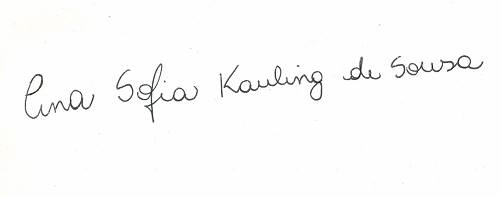 Ana Sofia Kauling de Sousa